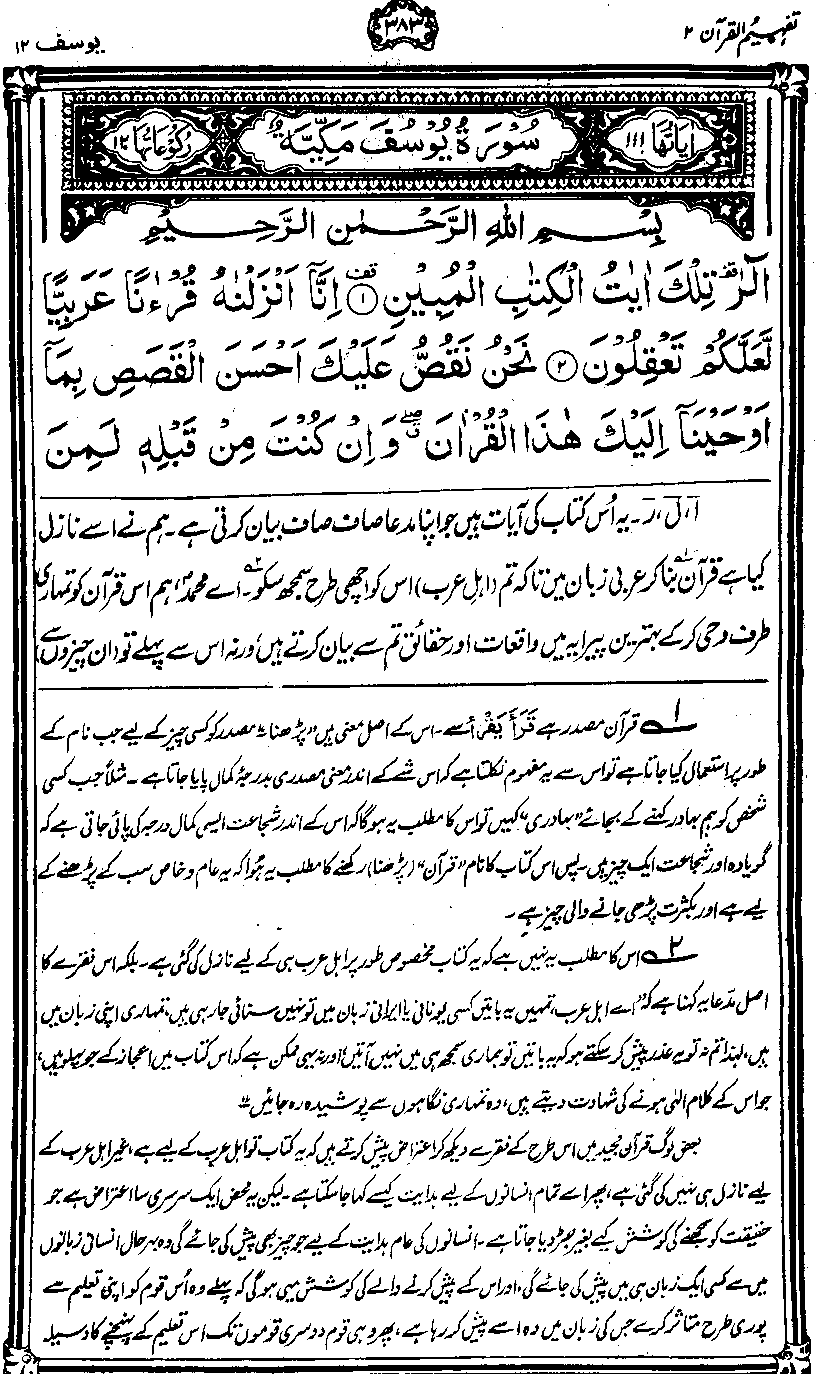 تفہیم القرآن ۲
۳۸۳
یوسف ۱۲
اٰیَاتُهَا ۱۱۱
سُوْرَةُ يُوْسُفَ مَكِّيَّةٌ
رُكُوْعَاتُهَا ۱۲
بِسْمِ اللهِ الرَّحْمٰنِ الرَّحِيْمِ
الٓرٰ تِلْكَ اٰيٰتُ الْكِتٰبِ الْمُبِيْنِ ۱ اِنَّاۤ اَنْزَلْنٰهُ قُرْءٰنًا عَرَبِيًّا
لَّعَلَّكُمْ تَعْقِلُوْنَ ۲ نَحْنُ نَقُصُّ عَلَيْكَ اَحْسَنَ الْقَصَصِ بِمَاۤ
اَوْحَيْنَاۤ اِلَيْكَ هٰذَا الْقُرْاٰنَ وَاِنْ كُنْتَ مِنْ قَبْلِهٖ لَمِنَ
ا، ل، ر۔ یہ اُس کتاب کی آیات ہیں جو اپنا مدعا صاف صاف بیان کرتی ہے۔ ہم نے اسے نازل
کیا ہے قرآن ۱؎ بنا کر عربی زبان میں تاکہ تم (اہلِ عرب) اس کو اچھی طرح سمجھ سکو ۲؎۔ اے محمدؐ، ہم اس قرآن کو تمہاری
طرف وحی کر کے بہترین پیرایہ میں واقعات اور حقائق تم سے بیان کرتے ہیں، ورنہ اس سے پہلے تو (ان چیزوں سے)
۱؎ قرآن مصدر ہے قَرَأَ یَقْرَأُ سے۔ اس کے اصل معنی ہیں ”پڑھنا“۔ مصدر کو کسی چیز کے لیے جب نام کے
طور پر استعمال کیا جاتا ہے تو اس سے یہ مفہوم نکلتا ہے کہ اس شے کے اندر معنی مصدری بدرجۂ کمال پایا جاتا ہے۔ مثلاً جب کسی
شخص کو ہم بہادر کہنے کے بجائے ”بہادری“ کہیں تو اس کا مطلب یہ ہوگا کہ اس کے اندر شجاعت ایسی کمال درجہ کی پائی جاتی ہے کہ
گویا وہ اور شجاعت ایک چیز ہیں۔ پس اس کتاب کا نام ”قرآن“ (پڑھنا) رکھنے کا مطلب یہ ہُوا کہ یہ عام و خاص سب کے پڑھنے کے
لیے ہے اور بکثرت پڑھی جانے والی چیز ہے۔
۲؎ اس کا مطلب یہ نہیں ہے کہ یہ کتاب مخصوص طور پر اہلِ عرب ہی کے لیے نازل کی گئی ہے۔ بلکہ اس فقرے کا
اصل مدّعا یہ کہنا ہے کہ ”اے اہلِ عرب، تمہیں یہ باتیں کسی یونانی یا ایرانی زبان میں تو نہیں سنائی جا رہی ہیں، تمہاری اپنی زبان میں
ہیں، لہٰذا تم نہ تو یہ عذر پیش کر سکتے ہو کہ یہ باتیں تو ہماری سمجھ ہی میں نہیں آتیں اور نہ یہی ممکن ہے کہ اس کتاب میں اعجاز کے جو پہلو ہیں،
جو اس کے کلام الٰہی ہونے کی شہادت دیتے ہیں، وہ تمہاری نگاہوں سے پوشیدہ رہ جائیں“۔
بعض لوگ قرآن مجید میں اس طرح کے فقرے دیکھ کر اعتراض پیش کرتے ہیں کہ یہ کتاب تو اہلِ عرب کے لیے ہے، غیر اہلِ عرب کے
لیے نازل ہی نہیں کی گئی ہے، پھر اسے تمام انسانوں کے لیے ہدایت کیسے کہا جا سکتا ہے۔ لیکن یہ محض ایک سرسری سا اعتراض ہے جو
حقیقت کو سمجھنے کی کوشش کیے بغیر جڑ دیا جاتا ہے۔ انسانوں کی عام ہدایت کے لیے جو چیز بھی پیش کی جائے گی وہ بہرحال انسانی زبانوں
میں سے کسی ایک زبان ہی میں پیش کی جائے گی، اور اس کے پیش کرنے والے کی کوشش یہی ہوگی کہ پہلے وہ اُس قوم کو اپنی تعلیم سے
پوری طرح متاثر کرے جس کی زبان میں وہ اسے پیش کر رہا ہے، پھر وہی قوم دوسری قوموں تک اس تعلیم کے پہنچنے کا وسیلہ